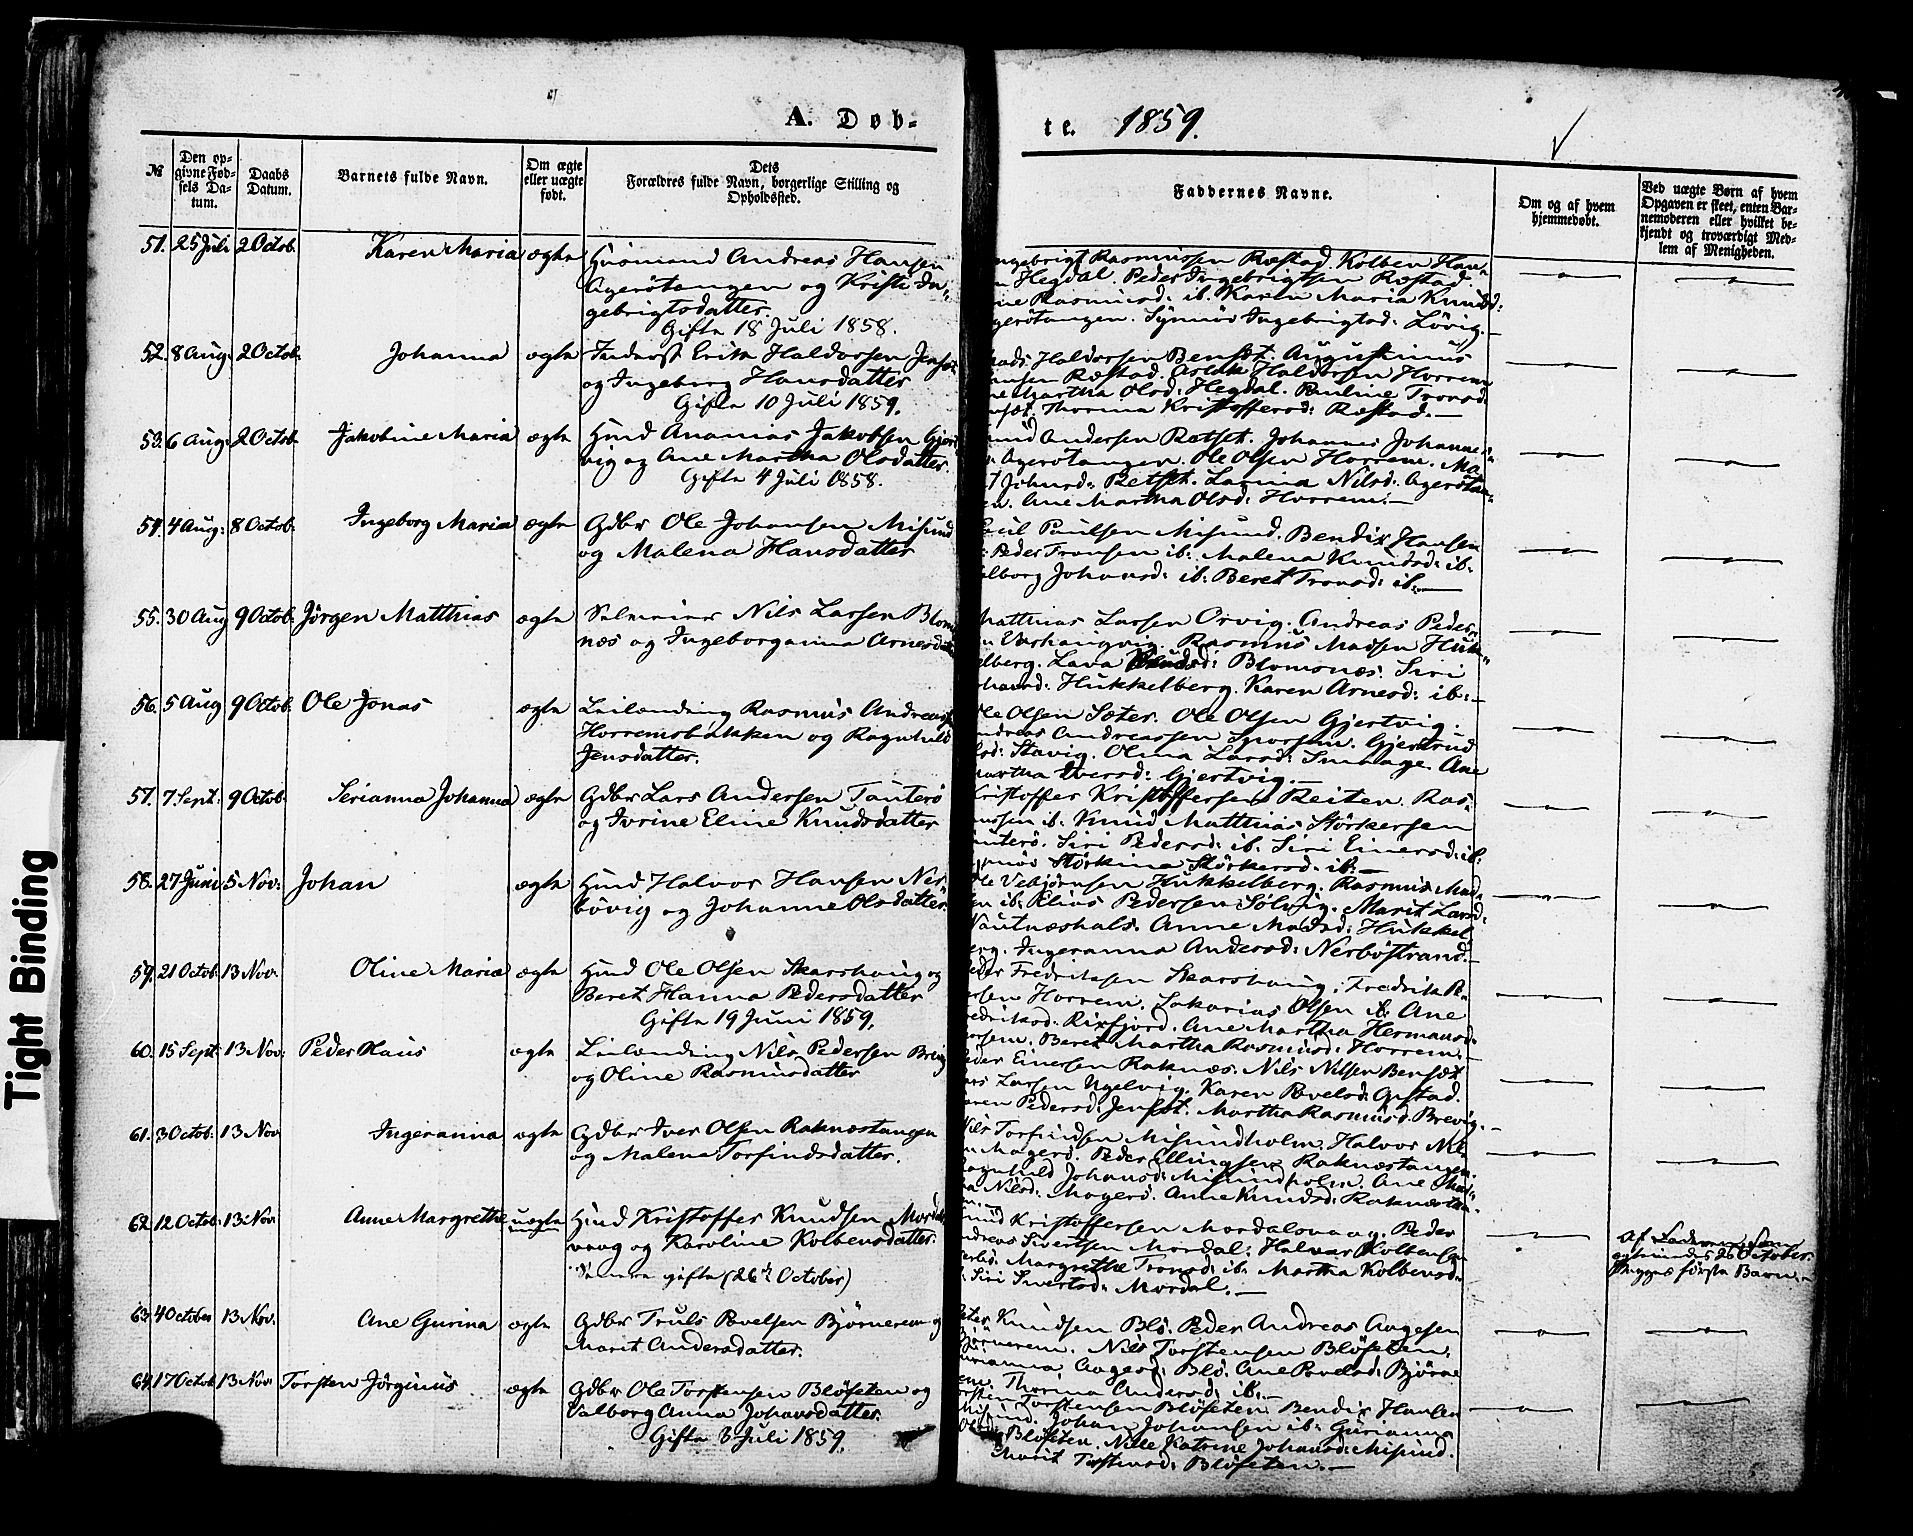 A. Døb-
te. 1859.
№
Den op-
givne Fød-
sels Da-
tum.
Daabs
Datum.
Barnets fulde Navn.
Om ægte
eller uægte
født.
Dets
Forældres fulde Navn, borgerlige Stilling og
Opholdssted.
Faddernes Navne.
Om og af hvem
hjemmedøbt.
Ved uægte Børn af hvem
Opgaven er skeet, enten Bar-
nemoderen eller hvilket be-
kjendt og troværdigt Med-
lem af Menigheden.
51. 25 Juli 2 Octob. Karen Maria ægte Husmand Andreas Hansen
Agerötangen og Kristi In-
gebrigtsdatter.
Gifte 18 Juli 1858.
Rasmussen Røstad. Kolben Han-
Hegdal. Peder Ingebrigtsen Røstad.
Rasmusd: ib. Karen Maria Knudsd:
Agerötangen. Synnöv Ingebrigtsd: Lövig.
52. 8 Aug: 2 Octob. Johanna ægte Inderst Erik Haldorsen Jenset
og Ingeborg Hansdatter
Gifte 10 Juli 1859.
Mads Haldorsen Bensæt. Augustinus
Hansen Røstad. Haldorsen Horrem
Martha Olsd: Hegdal. Pauline Tronsd:
Thorina Kristoffersd: Røstad.
53. 6 Aug: 2 Octob. Jakobine Maria ægte Hmd Ananias Jakobsen Gjert-
vig og Ane Martha Olsdatter.
Gifte 4 Juli 1858.
Andersen Retset. Johannes Johannes-
Agerötangen. Ole Olsen Horrem. Ma-
Johnsd: Retset. Lavina Nilsd: Agerötan-
Ane Martha Olsd: Horrem.
54. 4 Aug: 8 Octob. Ingeborg Maria ægte Gdbr Ole Johansen Misund
og Malena Hansdatter
Paulsen Misund. Bendix Hansen
Peder Tronsen ib: Malena Knudsd: ib:
Valborg Johansd: ib: Beret Tronsd: ib.
55. 30 Aug 9 Octob. Jörgen Matthias ægte Selveier Nils Larsen Blom-
næs og Ingeborganna Arnesdatter
Matthias Larsen Orvig. Andreas Peder-
Rasmus Madsen Huk-
kelberg. Lava Blomsnæs. Siri
Hukkelberg. Karen Arnesd: ib:
56. 5 Aug 9 Octob. Ole Jonas ægte Leilænding Rasmus Andreassen
Horremsbakken og Ragnhild
Jensdatter.
Ole Olsen Sæter. Ole Olsen Gjertvig.
Andreas Andreassen Sporsem. Gjertrud
Stavig. Olina Larsd: Smhage. Ane
Martha Iversd: Gjertvig.
57. 7 Sept. 9 Octob. Serianna Johanna ægte Gdbr Lars Andersen Tauterö
og Ivrine Eline Knudsdatter
Kristoffer Kristoffersen Reiten. Ras-
ib. Knud Matthias Störkersen
Tauterö. Siri Pedersd: ib. Siri Einersd: ib:
Störkine Störkersd: ib:
58. 27 Juni 5 Nov: Johan ægte Hmd Halvor Hansen Ner-
bövig og Johanne Olsdatter.
Ole Vebjörnsen Hukkelberg. Rasmus Mad-
sen ib. Elias Pedersen Sölvig. Marit Larsd:
Nautneshals. Anne Madsd: Hukkel-
berg. Ingeranna Andersd: Nerböstrand.
59. 21 Octob. 13 Nov. Oline Maria ægte Hmd Ole Olsen Skarshaug og
Beret Hanna Pedersdatter
Gifte 19 Juni 1859.
Peder Fredriksen Skarshaug. Fredrik Pe-
dersen Horrem. Sakarias Olsen ib. Ane
Fredriksd: Rixfjord. Ane Martha Hermansd:
Beret Martha Rasmusd: Horrem.
60. 15 Sept: 13 Nov: Peder Klaus ægte Leilænding Nils Pedersen Brevig
og Oline Rasmusdatter
Peder Einersen Raknæs. Nils Nilsen Bensæt
Lars Larsen Ugelvig. Karen Povelsd: Gustad.
Karen Pedersd: Jenset. Martha Rasmusd: Brevig.
61. 3 Octob. 13 Nov Ingeranna ægte Gdbr Iver Olsen Raknæstangen
og Malena Torfindsdatter.
Nils Torfindsen Misundholm. Halvor Nil-
sen Magerö. Peder Ellingsen Raknæstangen.
Ragnhild Johansd: Misundholm. Ane
Nilsd: Magerö. Anne Knudsd: Raknæstan-
62. 12 Octob. 13 Nov. Anne Margrethe uægte Hmd Kristoffer Knudsen Mordals-
vaag og Karoline Kolbensdatter.
Senere gifte (26de October)
Knud Kristoffersen Mordalsvaag. Peder
Andreas Sivertsen Mordal. Halvar Kolbensen
Margrethe Tronsd: ib. Martha Kolbensd:
Siri Sivertsd: Mordal.
Af Faderen, Som
26 October.
Begges förste Barn.
63. 4 October 13 Nov. Ane Gurina ægte Gdbr Truls Povelsen Björnerem og
Marit Andersdatter.
Peter Knudsen Blö. Peder Andreas Aagesen
Björnerem. Nils Torstensen Blöseten.
Aagesd: Blö. Ane Povelsd: Björne-
rem. Thorina Andersd: ib.
64. 17 Octob. 13 Nov Torsten Jörginus ægte Gdbr Ole Torstensen Blöseten og
Valborg Anna Johansdatter.
Gifte 3 Juli 1859.
Torsten Torstensen Blöseten. Bendix Hansen
Misund. Johan Johansen ib: Gurianna
Blöseten. Nille Katrine Johansd: Misund.
Marit Torstensd: Blöseten.
Tight Binding